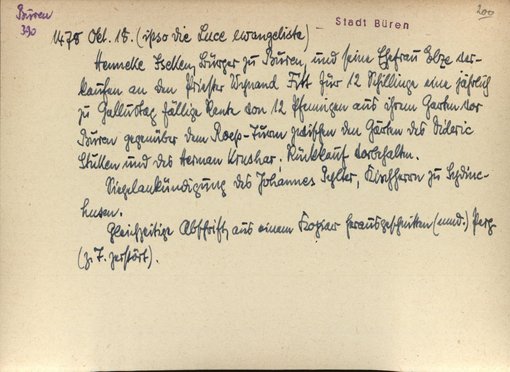 Büren
390
Stadt Büren
200
1478 Okt. 18. (ipso die Luce ewangeliste)
Henneke Iseken, Bürger zu Büren, und seine Ehefrau Ebze ver-
kaufen an den Priester Wynand Fitt für 12 Schillinge eine jährlich
zu Gallustag fällige Rente von 12 Pfennigen aus ihrem Garten vor
Büren gegenüber dem -Turm zwischen den Gärten des Dideric
Stullen und des Herman Kreshar, Rückkauf vorbehalten.
Siegelankündigung des Johannes Pehler, Kirchherrn zu
husen.
Gleichzeitige Abschrift, aus einem Kopiar herausgeschnitten (mnd.) Perg.
(z. T. zerstört).